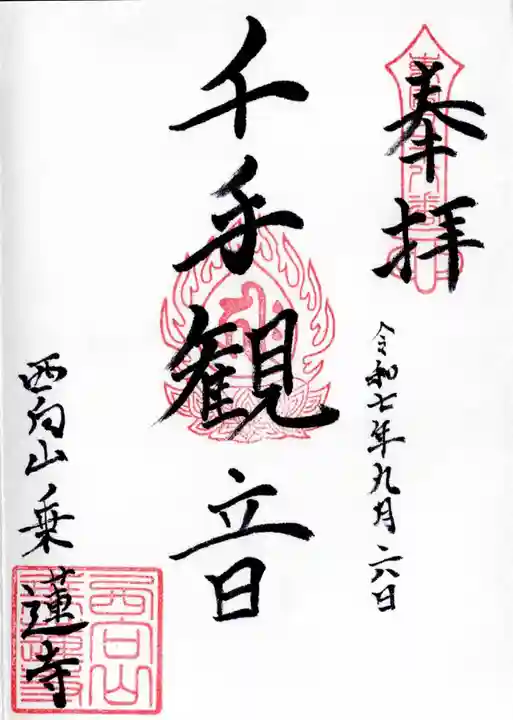 奉拝
令和七年九月二六日
千手観音
西向山乗蓮寺
西向山
乗蓮寺